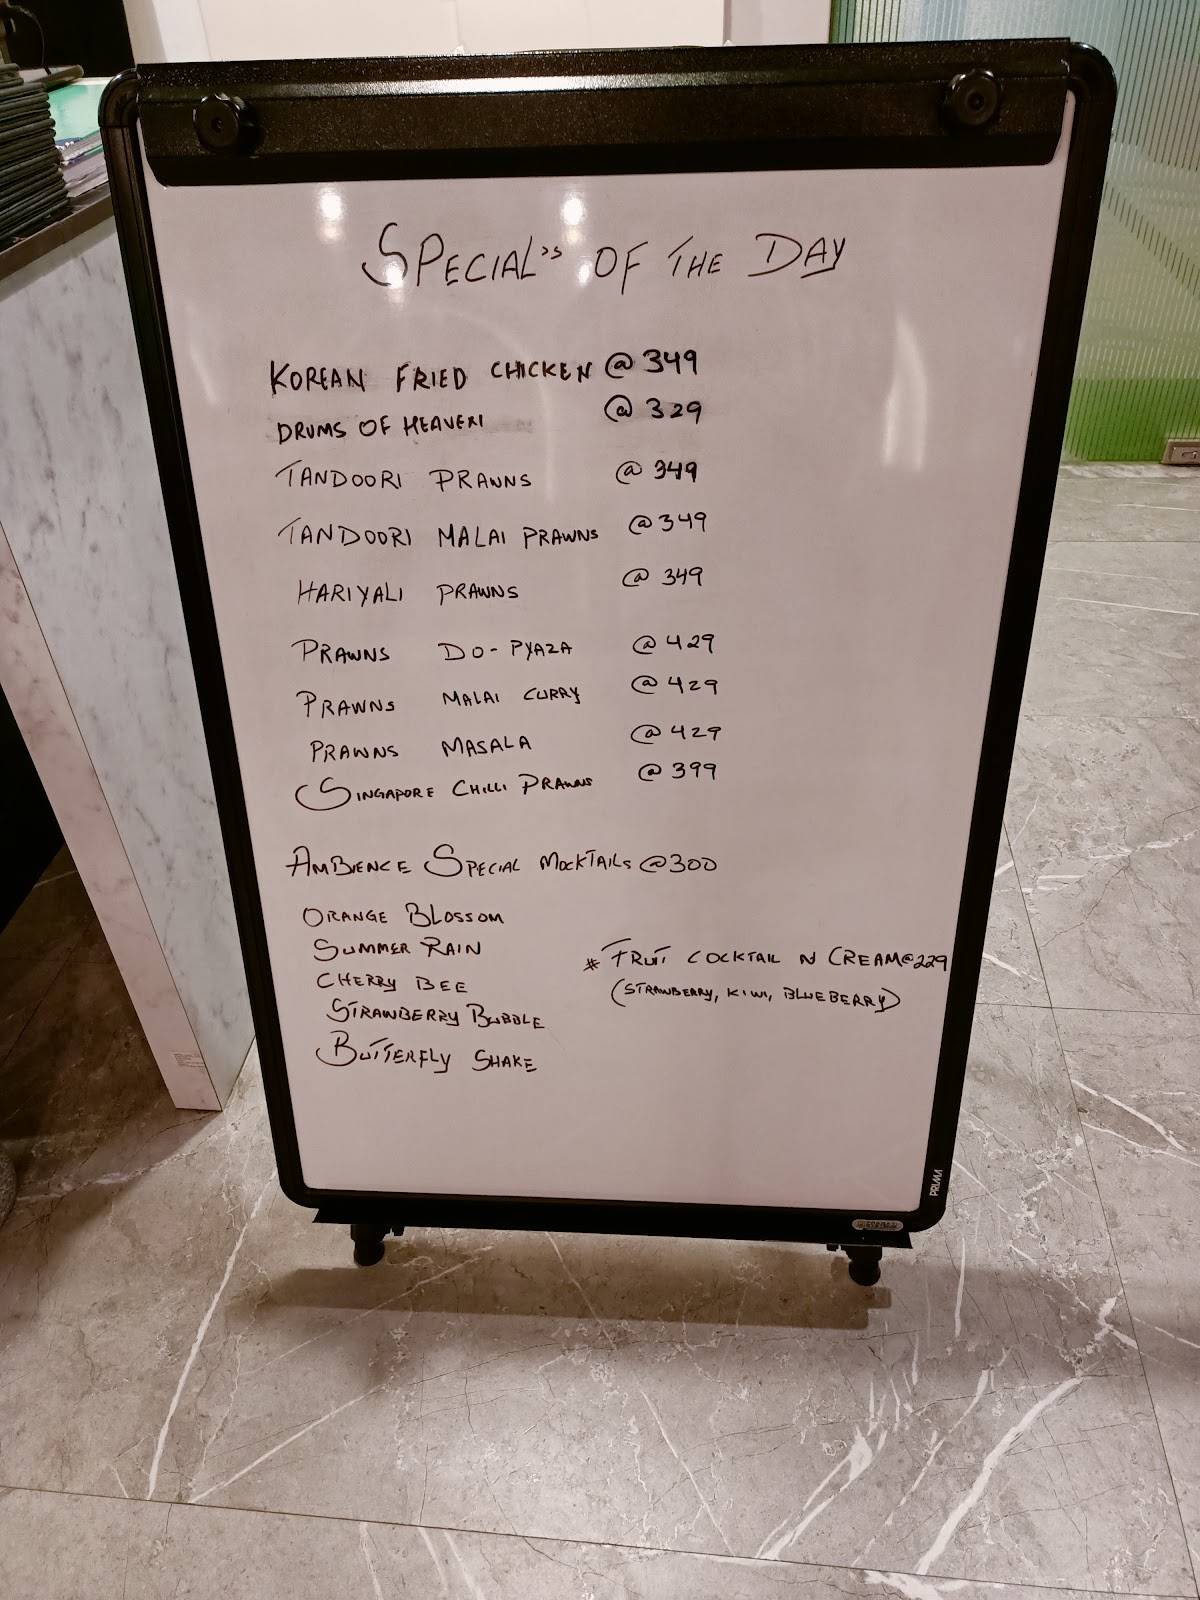 SPECIAL'S OF THE DAY
KOREAN FRIED CHICKEN @ 349
DRUMS OF HEAVEN @ 329
TANDOORI PRAWNS @ 349
TANDOORI MALAI PRAWNS @ 349
HARIYALI PRAWNS @ 349
PRAWNS DO-PYAZA @ 429
PRAWNS MALAI CURRY @ 429
PRAWNS MASALA @ 429
SINGAPORE CHILLI PRAWNS @ 399
AMBIENCE SPECIAL MOCKTAILS @300
ORANGE BLOSSOM
SUMMER RAIN
CHERRY BEE
STRAWBERRY BUBBLE
BUTTERFLY SHAKE
* FRUIT COCKTAIL N CREAM@229
(STRAWBERRY, KIWI, BLUEBERRY)
PRIMA